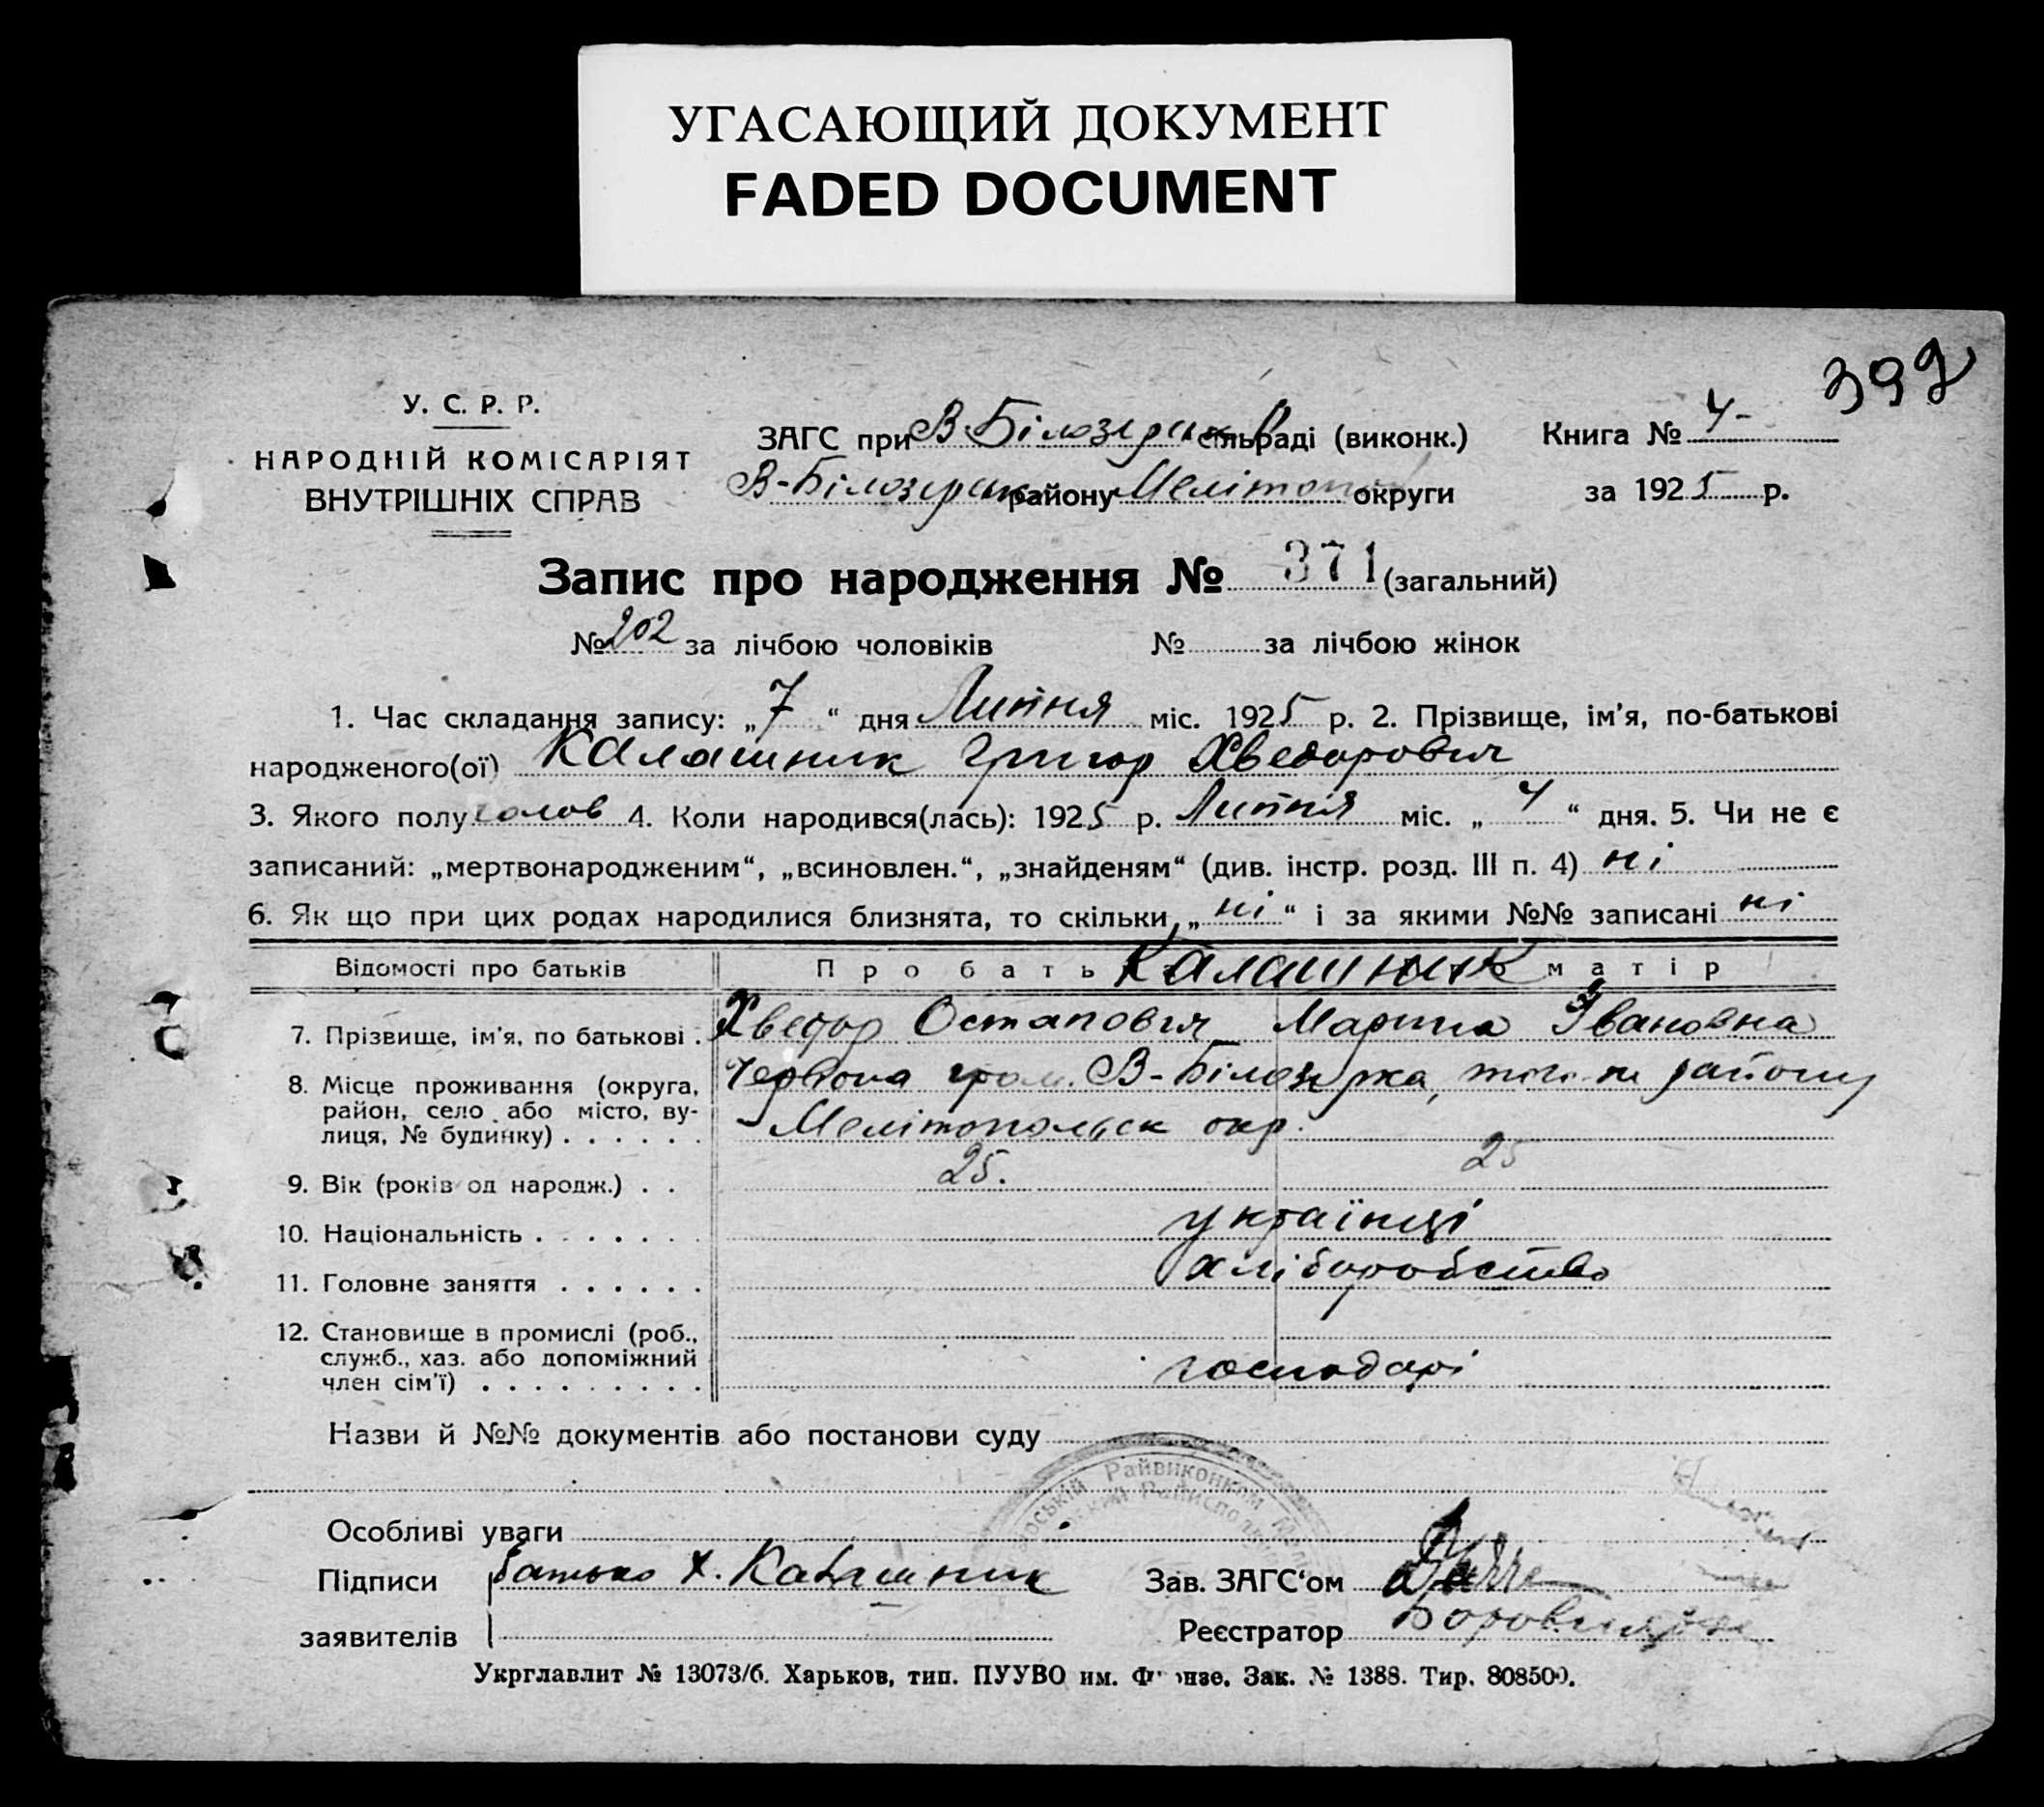 УГАСАЮЩИЙ ДОКУМЕНТ
FADED DOCUMENT
392
У. С. Р. Р.
НАРОДНІЙ КОМІСАРІЯТ
ВНУТРІШНІХ СПРАВ
ЗАГС при В Білозерск сільраді (виконк.) Книга № 4-
В-Білозерськ району Мелітопол округи за 1925 р.
Запис про народження № 371 (загальний)
№ 202 за лічбою чоловіків № за лічбою жінок
1. Час складання запису: „7“ дня Липня міс. 1925 р. 2. Прізвище, ім'я, по-батькові
народженого(ої) Калашник Григор Хведорович
3. Якого полу чолов 4. Коли народився(лась): 1925 р. Липня міс. „4“ дня. 5. Чи не є
записаний: „мертвонародженим“, „всиновлен.“, „знайденям“ (див. інстр. розд. III п. 4) ні
6. Як що при цих родах народилися близнята, то скільки „ні“ і за якими №№ записані ні
Відомості про батьків Про бать Калашник матір
7. Прізвище, ім'я, по батькові . Хведор Остапович Марина Івановна
8. Місце проживання (округа, Червона гром. В-Білозерка, того-ж району
район, село або місто, ву-
лиця, № будинку) . . . . . . Мелітопольск окр.
9. Вік (років од народж.) . . 25. 25
10. Національність . . . . . . . українці
11. Головне заняття . . . . . . хліборобство
12. Становище в промислі (роб.,
служб., хаз. або допоміжний
член сім'ї) . . . . . . . . . господарі
Назви й №№ документів або постанови суду
Райвиконком
Особливі уваги
Підписи батько Х. Калашник Зав. ЗАГС'ом
заявителів Реєстратор
Укрглавлит № 13073/б. Харьков, тип. ПУУВО им. Фрунзе. Зак. № 1388. Тир. 808500.